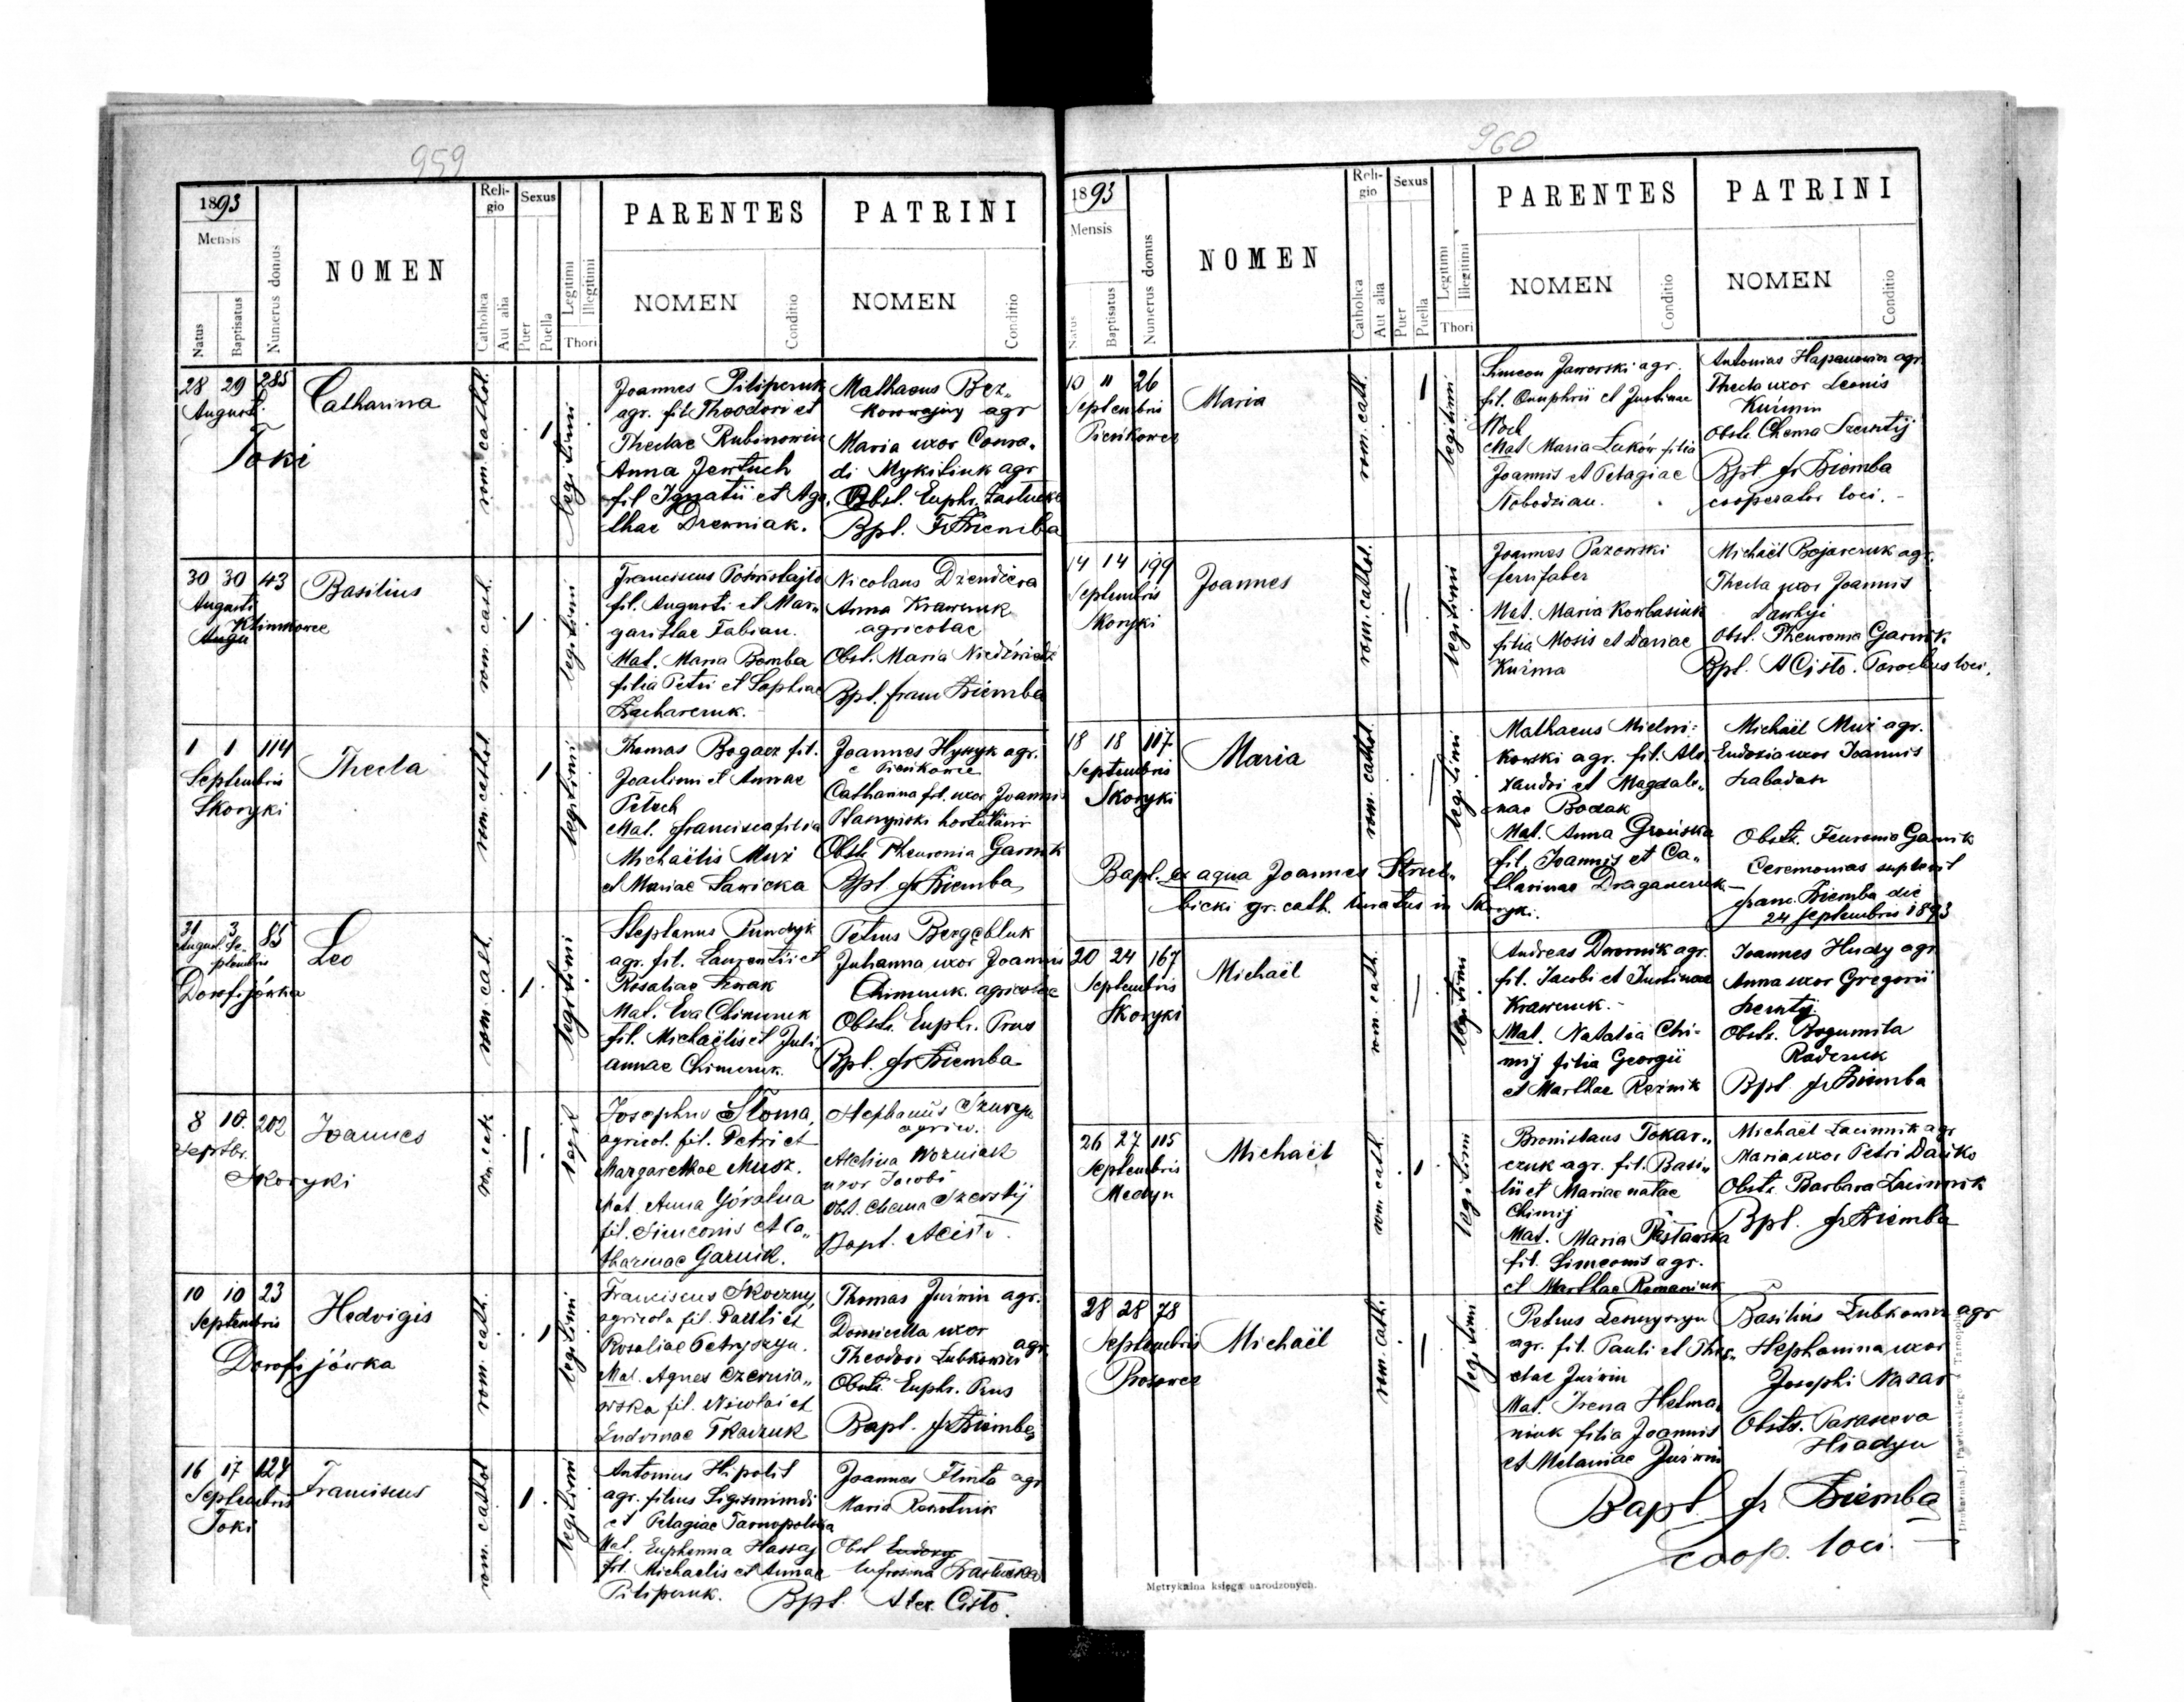 959
1893
Mensis
Natus
Baptisatus
Numerus domus
NOMEN
Reli-
gio
Catholica
Aut alia
Sexus
Puer
Puella
Legitimi
Illegitimi
Thori
PARENTES
NOMEN
Conditio
PATRINI
NOMEN
Conditio
28 29 285
Augusti
Toki
Catharina
rom. cathol.
legitimi
Joannes Piliperuk
agr. fil Theodori et
Theclae Rubinowicz
Anna Jewtuch
fil Ignatii et Aga
thae Drewniak.
Mathaeus Bez„
Korowajny agr
Maria uxor Conra„
di Mykitiuk agr
Obst. Euphr.
Bpt. Fr Ziemba
30 30 43
Augusti
Klimkowce
Augu
Basilius
rom. cath.
legitimi
Franciscus
fil. Augusti et Mar„
garithae Fabian.
Mat. Maria Bomba
filia Petri et Sophiae
Zacharczuk.
Nicolaus Dziendziera
Anna Krawczuk
agricolae
Obst. Maria Niedźwiedź
Bpt. franc Ziemba
1 1 114
Septembris
Skoryki
Thecla
rom. cathol
legitimi
Thomas Bogacz fil.
Joachimi et Annae
Petuch
Mat. francisca filia
Michaëlis Muź
et Mariae Sawicka
Joannes Hyszyk agr.
e Pieńkowce
Catharina fil. uxor Joannis
Obst. Pheuronia Garnik
Bpt. fr Ziemba
31 3 85
August. Se„
ptembris
Dorofijówka
Leo
rom. cath.
legitimi
Stephanus Pundyk
agr. fil. Laurentii et
Rosaliae
Mat. Eva Chimczuk
fil. Michaëlis et Juli
annae Chimczuk.
Petrus
Juhanna uxor Joannis
Chimczuk agricolae
Obstr. Euphr. Prus
Bpt. fr Ziemba
8 10. 202
Septbr.
Skoryki
Joannes
rom. cath.
legit
Josephus Słoma,
agricol. fil. Petri et
Margarethae Musz.
Mat. Anna Góralna
fil. Simeonis et Ca„
tharinae Garnik.
Stephanus
agric.
Wozniak
uxor Jacobi
Obst. Chema Szerstij
Bapt. ACisto.
10 10 23
Septembris
Dorofijówka
Hedvigis
rom. cath.
legitimi
Franciscus Skoczny,
agricola fil. Pauli et
Rosaliae Petryszyn.
Mat. Agnes Czernia„
wska fil. Nicolai et
Eudomae Tkaczuk
Thomas Juźwin agr.
Domicella uxor
Theodori Lubkowicz agr.
Obstr. Euphr. Prus
Bapt. fr Ziemba
16 17 124
Septembris
Toki
Franciscus
rom. cathol
legitimi
Antonius Hipolit
agr. filius Sigismundi
et Pelagiae Tarnopolska
Mat. Euphemia Hassaj
fil. Michaelis et Annae
Piliperuk.
Joannes Flinta agr
Maria
Obst Eudoxy
Eufrosina
Bpt. Alex. Cisto.
960
1893
Mensis
Natus
Baptisatus
Numerus domus
NOMEN
Reli-
gio
Catholica
Aut alia
Sexus
Puer
Puella
Legitimi
Illegitimi
Thori
PARENTES
NOMEN
Conditio
PATRINI
NOMEN
Conditio
10 11 26
Septembris
Pieńkowce
Maria
rom. cath.
legitimi
Simeon Jaworski agr.
fil. Onuphrii et Justinae
Mat Maria Luków filia
Joannis et Pelagiae
Antonius Hapanowicz agr.
Thecla uxor Leonis
Kuźmin
Obst. Chema Szerstij
Bpt fr Ziemba
cooperator loci. -
14 14 199
Septembris
Skoryki
Joannes
rom. cathol.
legitimi
Joannes Pazowski
ferrifaber
Mat. Maria Kowbasiuk
filia Mosis et Dariae
Kuźma
Michaël Bojarczuk agr.
Thecla uxor Joannis
Obst. Pheuronia Garnik
Bpt. ACisto. Parochus loci.
18 18 117
Septembris
Skoryki
Maria
rom. cathol.
legitimi
Mathaeus Mielni=
kowski agr. fil. Ale
xandri et Magdale„
nae Bodak
Mat. Anna Grońska
fil. Joannis et Ca„
tharinae Draganczuk
Michaël Muź agr.
Eudoxia uxor Joannis
Obstr. Feuronia Garnik
Ceremonias supplevit
franc. Ziemba die
24 Septembris 1893
Bapt. ex aqua Joannes Strut„
bicki gr. cath. curatus in Skoryki.
20 24 167
Septembris
Skoryki
Michaël
rom. cath.
legitimi
Andreas Dwornik agr.
fil. Jacobi et Justinae
Krawczuk.
Mat. Natalia Chi=
mij filia Georgii
et Marthae Reźnik
Joannes Hudy agr.
Anna uxor Gregorii
Obstr. Bogumila
Raderuk
Bpt fr Ziemba
26 27 115
Septembris
Medyn
Michaël
rom cath.
legitimi
Bronislaus Tokar„
czuk agr. fil. Basi„
lii et Mariae natae
Chimij
Mat. Maria
fil. Simeonis agr.
et Marthae Romaniuk
Michaël Lucinnik agr
Maria uxor Petri Dańko
Obstr. Barbara Lucinnik
Bpt. fr Ziemba
28 28 78
Septembris
Prosowce
Michaël
rom. cath.
legitimi
Petrus
agr. fil. Pauli et The„
clae Juźwin
Mat. Irena Helma„
niuk filia Joannis
et Melaniae Juźwin
Basilius Lubkowicz agr
Stephanina uxor
Josephi Nazar
Obstr. Parascewa
Hladyn
Bapt. fr Ziemba
coop. loci. -
Metrykalna księga narodzonych.
Drukarnia J. Pawłowskiego w Tarnopolu.